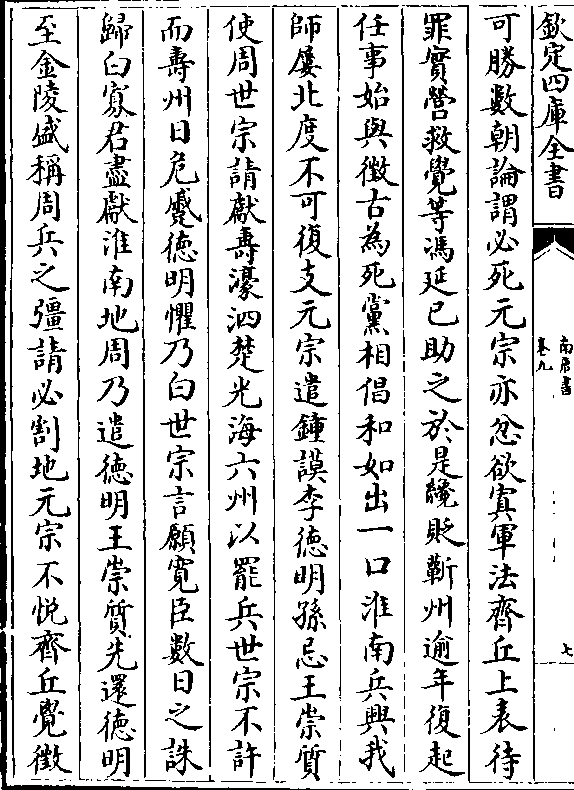 欽定四庫全書
南唐書
卷九
七
可勝數朝論謂必死元宗亦忿欲寘軍法齊丘上表待
罪實營救覺等馮延已助之於是纔貶蘄州逾年復起
任事始與徴古為死黨相倡和如出一口淮南兵興我
師屢北度不可復支元宗遣鍾謨李徳明孫忌王崇質
使周世宗請獻壽濠泗楚光海六州以罷兵世宗不許
而壽州日危蹙徳明懼乃白世宗言願寛臣數日之誅
歸白寡君盡獻淮南地周乃遣徳明王崇質先還徳明
至金陵盛稱周兵之彊請必割地元宗不悦齊丘覺徴